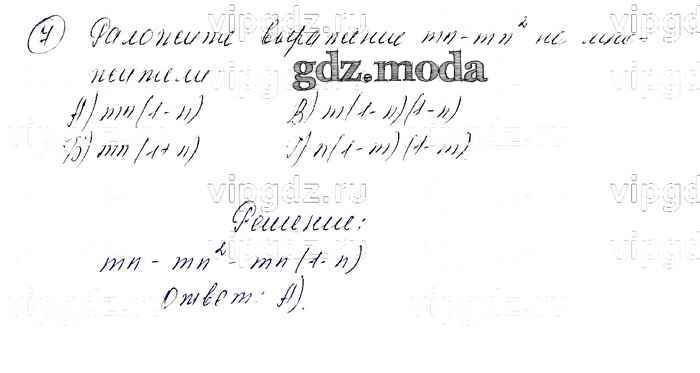 vipgdz.ru vipgdz.ru vipg
7) Разложите выражение mn-mn² на мно-
жители
gdz.moda
vipgdz.ru vipg
А) mn(1-n) В) m(1-n)(1-n)
vipgdz.ru vipgdz.ru
Б) mn(1+n) Г) n(1-m)(1-m)
vipgdz.ru vipg
Решение:
vipgdz.ru vipgdz.ru
mn - mn² = mn(1-n)
Ответ: А).
vipgdz.ru vipg